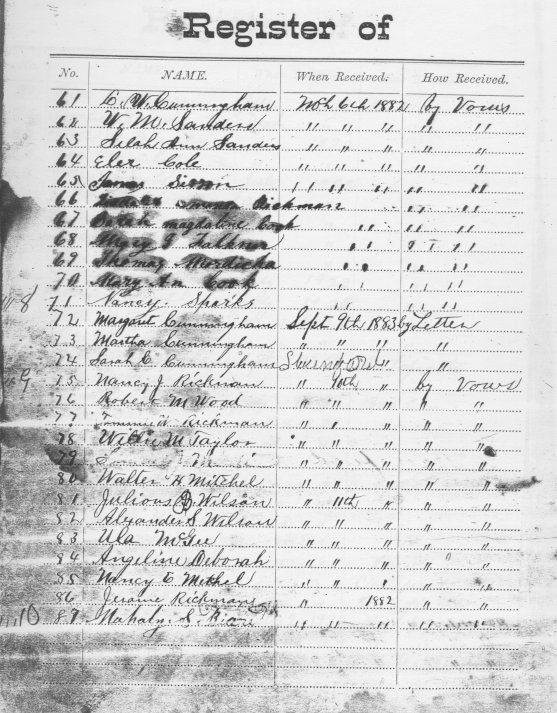 Register of
No. NAME. When Received. How Received.
61 E. W. Cunningham Nov 6th 1882 by Vows
62 W. M. Sanders " " " " "
63 Silah Ann Sanders " " " " "
64 Elex Cole " " " " "
65 James " " " " "
66 Rickman " " " "
67 magdaline " " " "
68 Mary Falkner " " " "
69 Thomas " " " "
70 Mary An Cook " " " "
71 Nancy Sparks " " " "
72 Margaret Cunningham Sept 9th 1883 by Letter
73 Martha Cunningham " " " " "
74 Sarah C Cunningham " "
75 Nancy J. Rickman " 10th " by Vows
76 Robert M Wood " " " " "
77 Rickman " " " " "
78 Willie M Taylor " " " " "
79 " " " " "
80 Walter H Mitchel " " " " "
81 Julious Wilson " 11th " " "
82 Alexander S Wilson " " " " "
83 Ula McGee " " " " "
84 Angeline Deborah " " " " "
85 Nancy E Mitchel " " " " "
86 Rickman " 1882 " "
87 Mahaly S. " " " " "